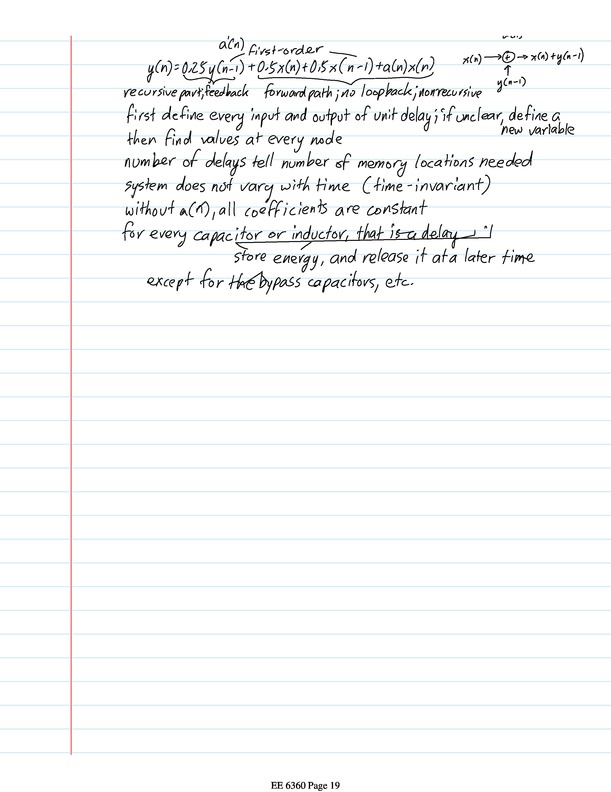 a'(n)
first-order
y(n)=0.25y(n-1)+0.5x(n)+0.5x(n-1)+a(n)x(n)
x(n) → + → x(n)+y(n-1)
↑
y(n-1)
recursive part; feedback forward path; no loopback; nonrecursive
first define every input and output of unit delay; if unclear, define a
new variable
then find values at every node
number of delays tell number of memory locations needed
system does not vary with time (time-invariant)
without a(n), all coefficients are constant
for every capacitor or inductor, that is a delay
store energy, and release it at a later time
except for the bypass capacitors, etc.
EE 6360 Page 19